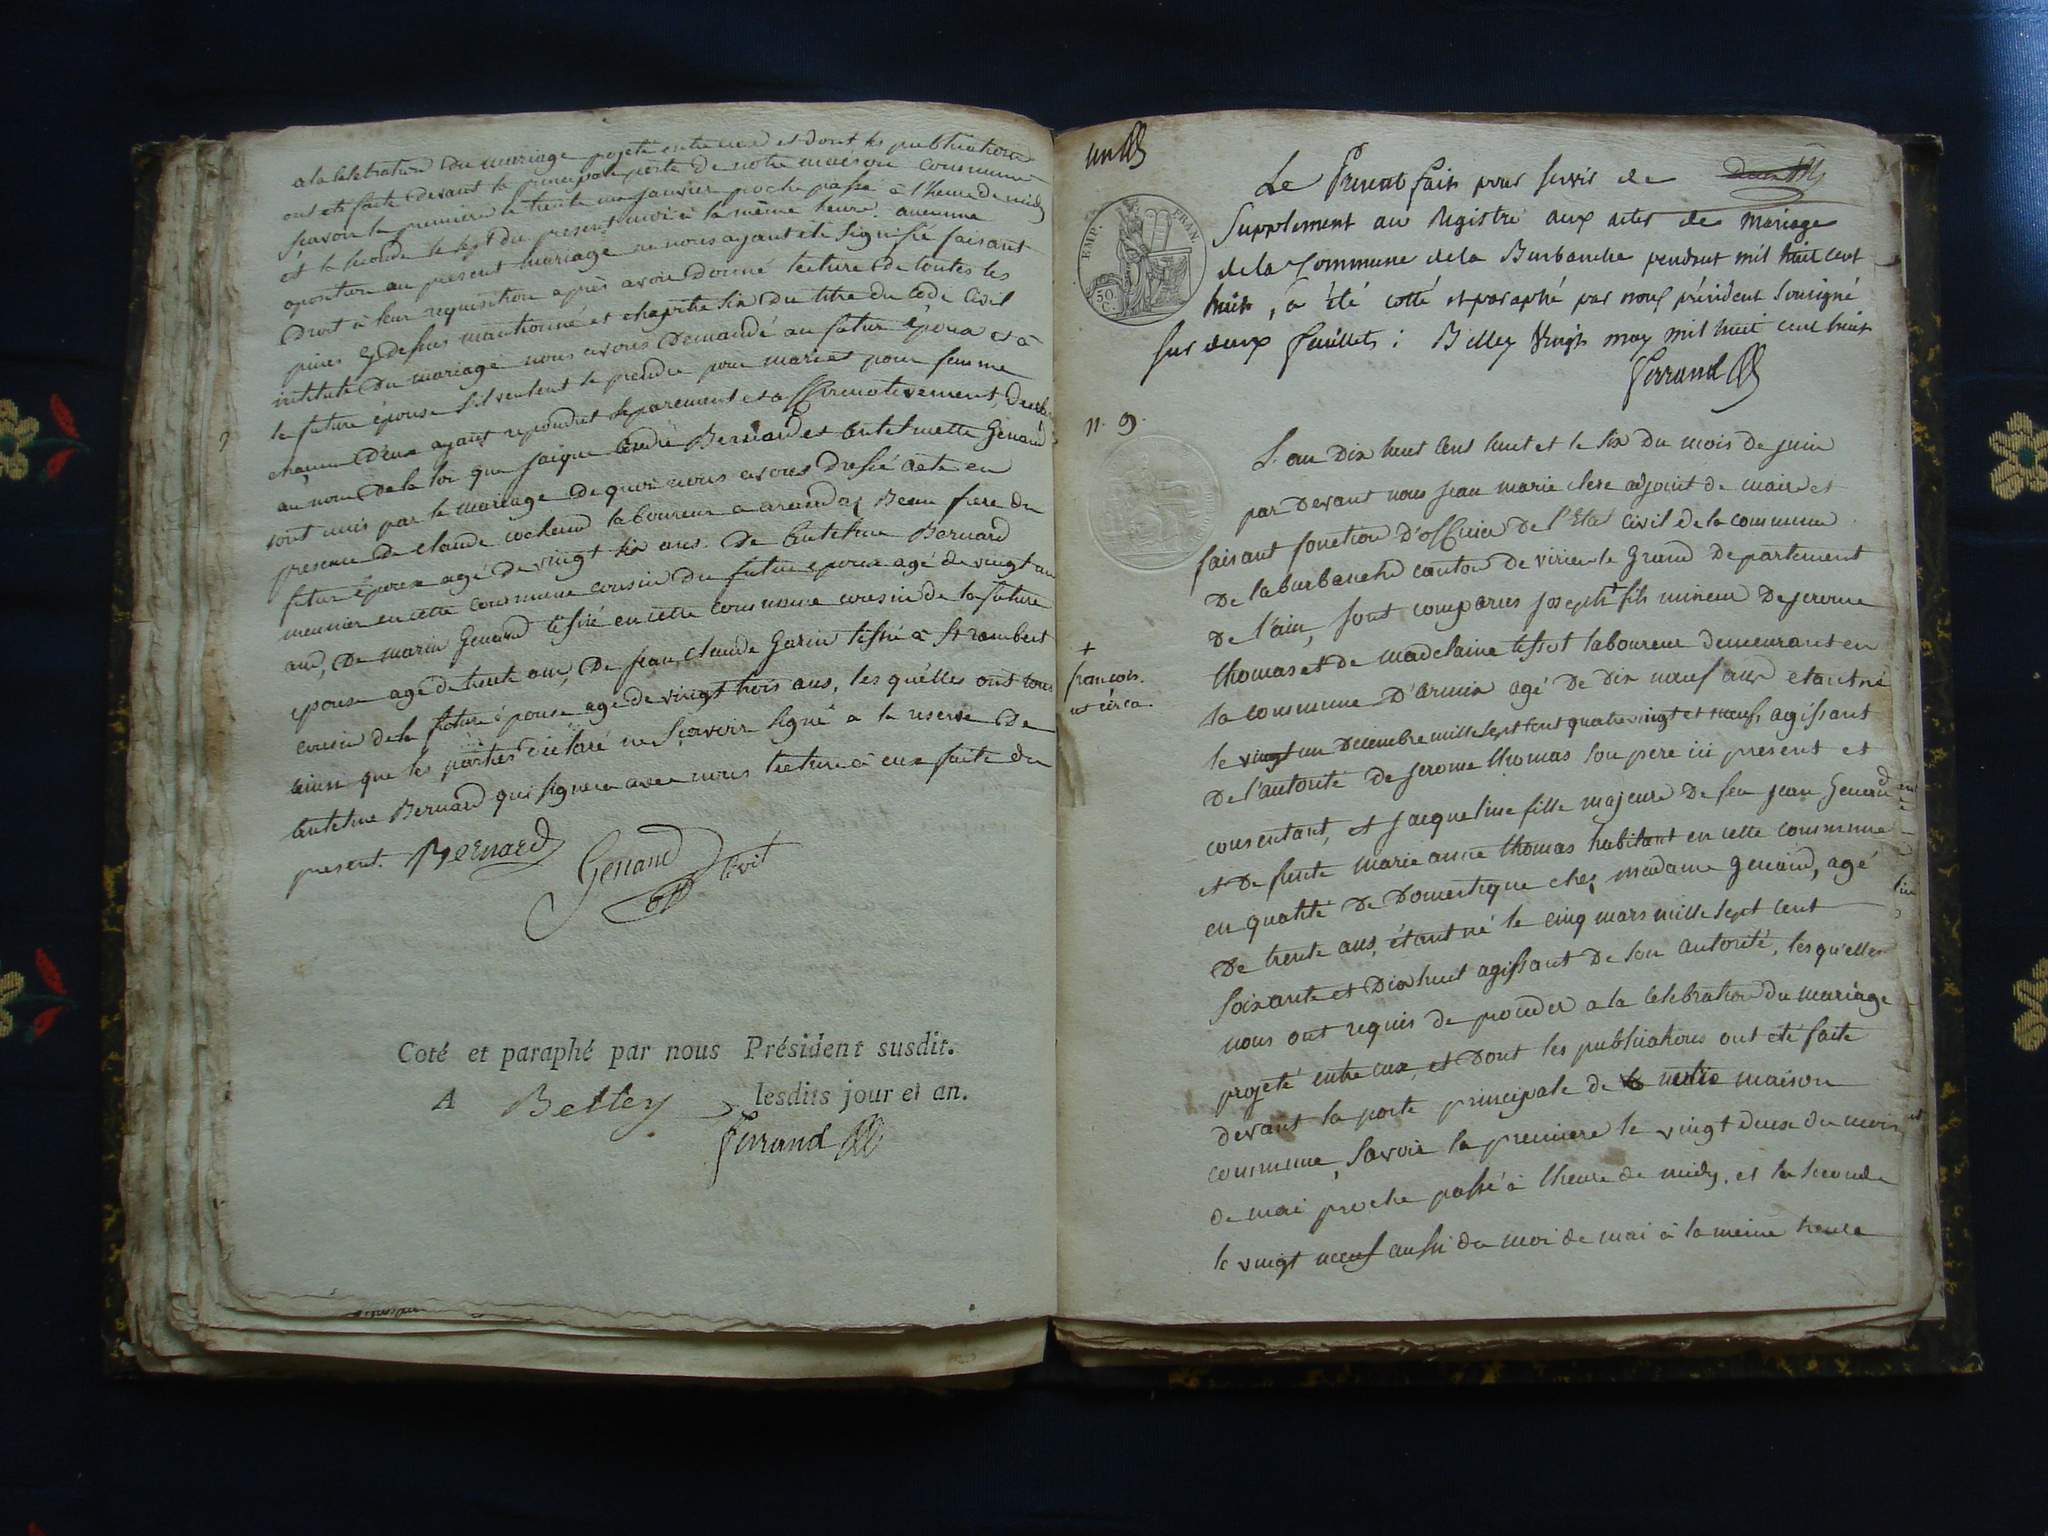 a la celebration du mariage projeté entre eux et dont les publications
ont eté faite devant la principale porte de notre maison commune
sçavoir la premiere le trente un janvier proche passé a l'heure de midy
et la seconde le sept du present moi à la même heure. aucunne
oposition au present mariage ne nous ayant eté signifié faisant
droit à leur requisition après avoir donné lecture de toutes les
pieces cy dessus mantionné et chapitre six du titre du Code Civil
intitulé du mariage nous avons demandé au futur époux et à
la future épouse s'il veulent se prendre pour mari et pour femme
chacun d'eux ayant repondret separement et affirmativement,
au nom de la loi que jaique André Bernard et Antelmette Genand
sont unis par le mariage de quoi nous avons dressé acte en
presence de Claude cochend laboureur a arandas Beau frere du
futur époux agé de vingt six ans. De Antelme Bernard
meunier en cette commune cousin du futur epoux agé de vingt un
ans, De marin Genand tissié en cette commune cousin de la future
epouse agé de trente ans, De jean Claude Garin tissié a St rambert
cousin de la future épouse agé de vingt trois ans, les quélles ont tous
ainsi que les parties déclaré ne sçavoir signé a la reserve De
Antelme Bernard qui signera avec nous lecture à eux faite du
present. Bernard
Genand
Coté et paraphé par nous Président susdit.
A Belley lesdits jour et an.
Ferrand
un
Le Present fait pour servir de
Supplement au Registre aux actes de mariage
de la Commune de la Burbanche pendant mil huit cent
huit, a été cotté et paraphé par nous président Soussigné
sur deux feuillets : Belley Vingt may mil huit cent huit
Ferrand
EMP. FRAN.
50 C.
n. 9.
L'an Dix huit Cens huit et le six du mois de juin
par devant nous Jean marie clerc adjoint de maire et
faisant fonction D'officier De l'Etat Civil de la commune
De la burbanche canton de virieu le Grand Departement
De l'ain, sont comparus joseph + fils mineur De jerome
thomas et de madelaine tissot laboureur demeurant en
la commune D'armix agé de dix noeuf ans etant né
le vingt un Decembre mille sept cent quatre vingt et noeuf, agissant
De l'autorité de jerome thomas son pere ici present et
consentant, et jacqueline fille majeure De feu jean Genand
et De funte marie anne thomas habitant en cette commune
en qualité De Domestique chez madame Genand, agé
De trente ans, étant né le cinq mars mille sept cent
soixante et Dix huit agissant De son autorité, les quélles
nous ont requis de proceder a la celebration du mariage
projeté entre eux, et dont les publications ont eté faite
devant la porte principale de notre maison
commune, savoir la premiere le vingt deux du mois
de mai proche passé à l'heure de midy, et la seconde
le vingt noeuf aussi du moi de mai à la meme heure
+
françois.